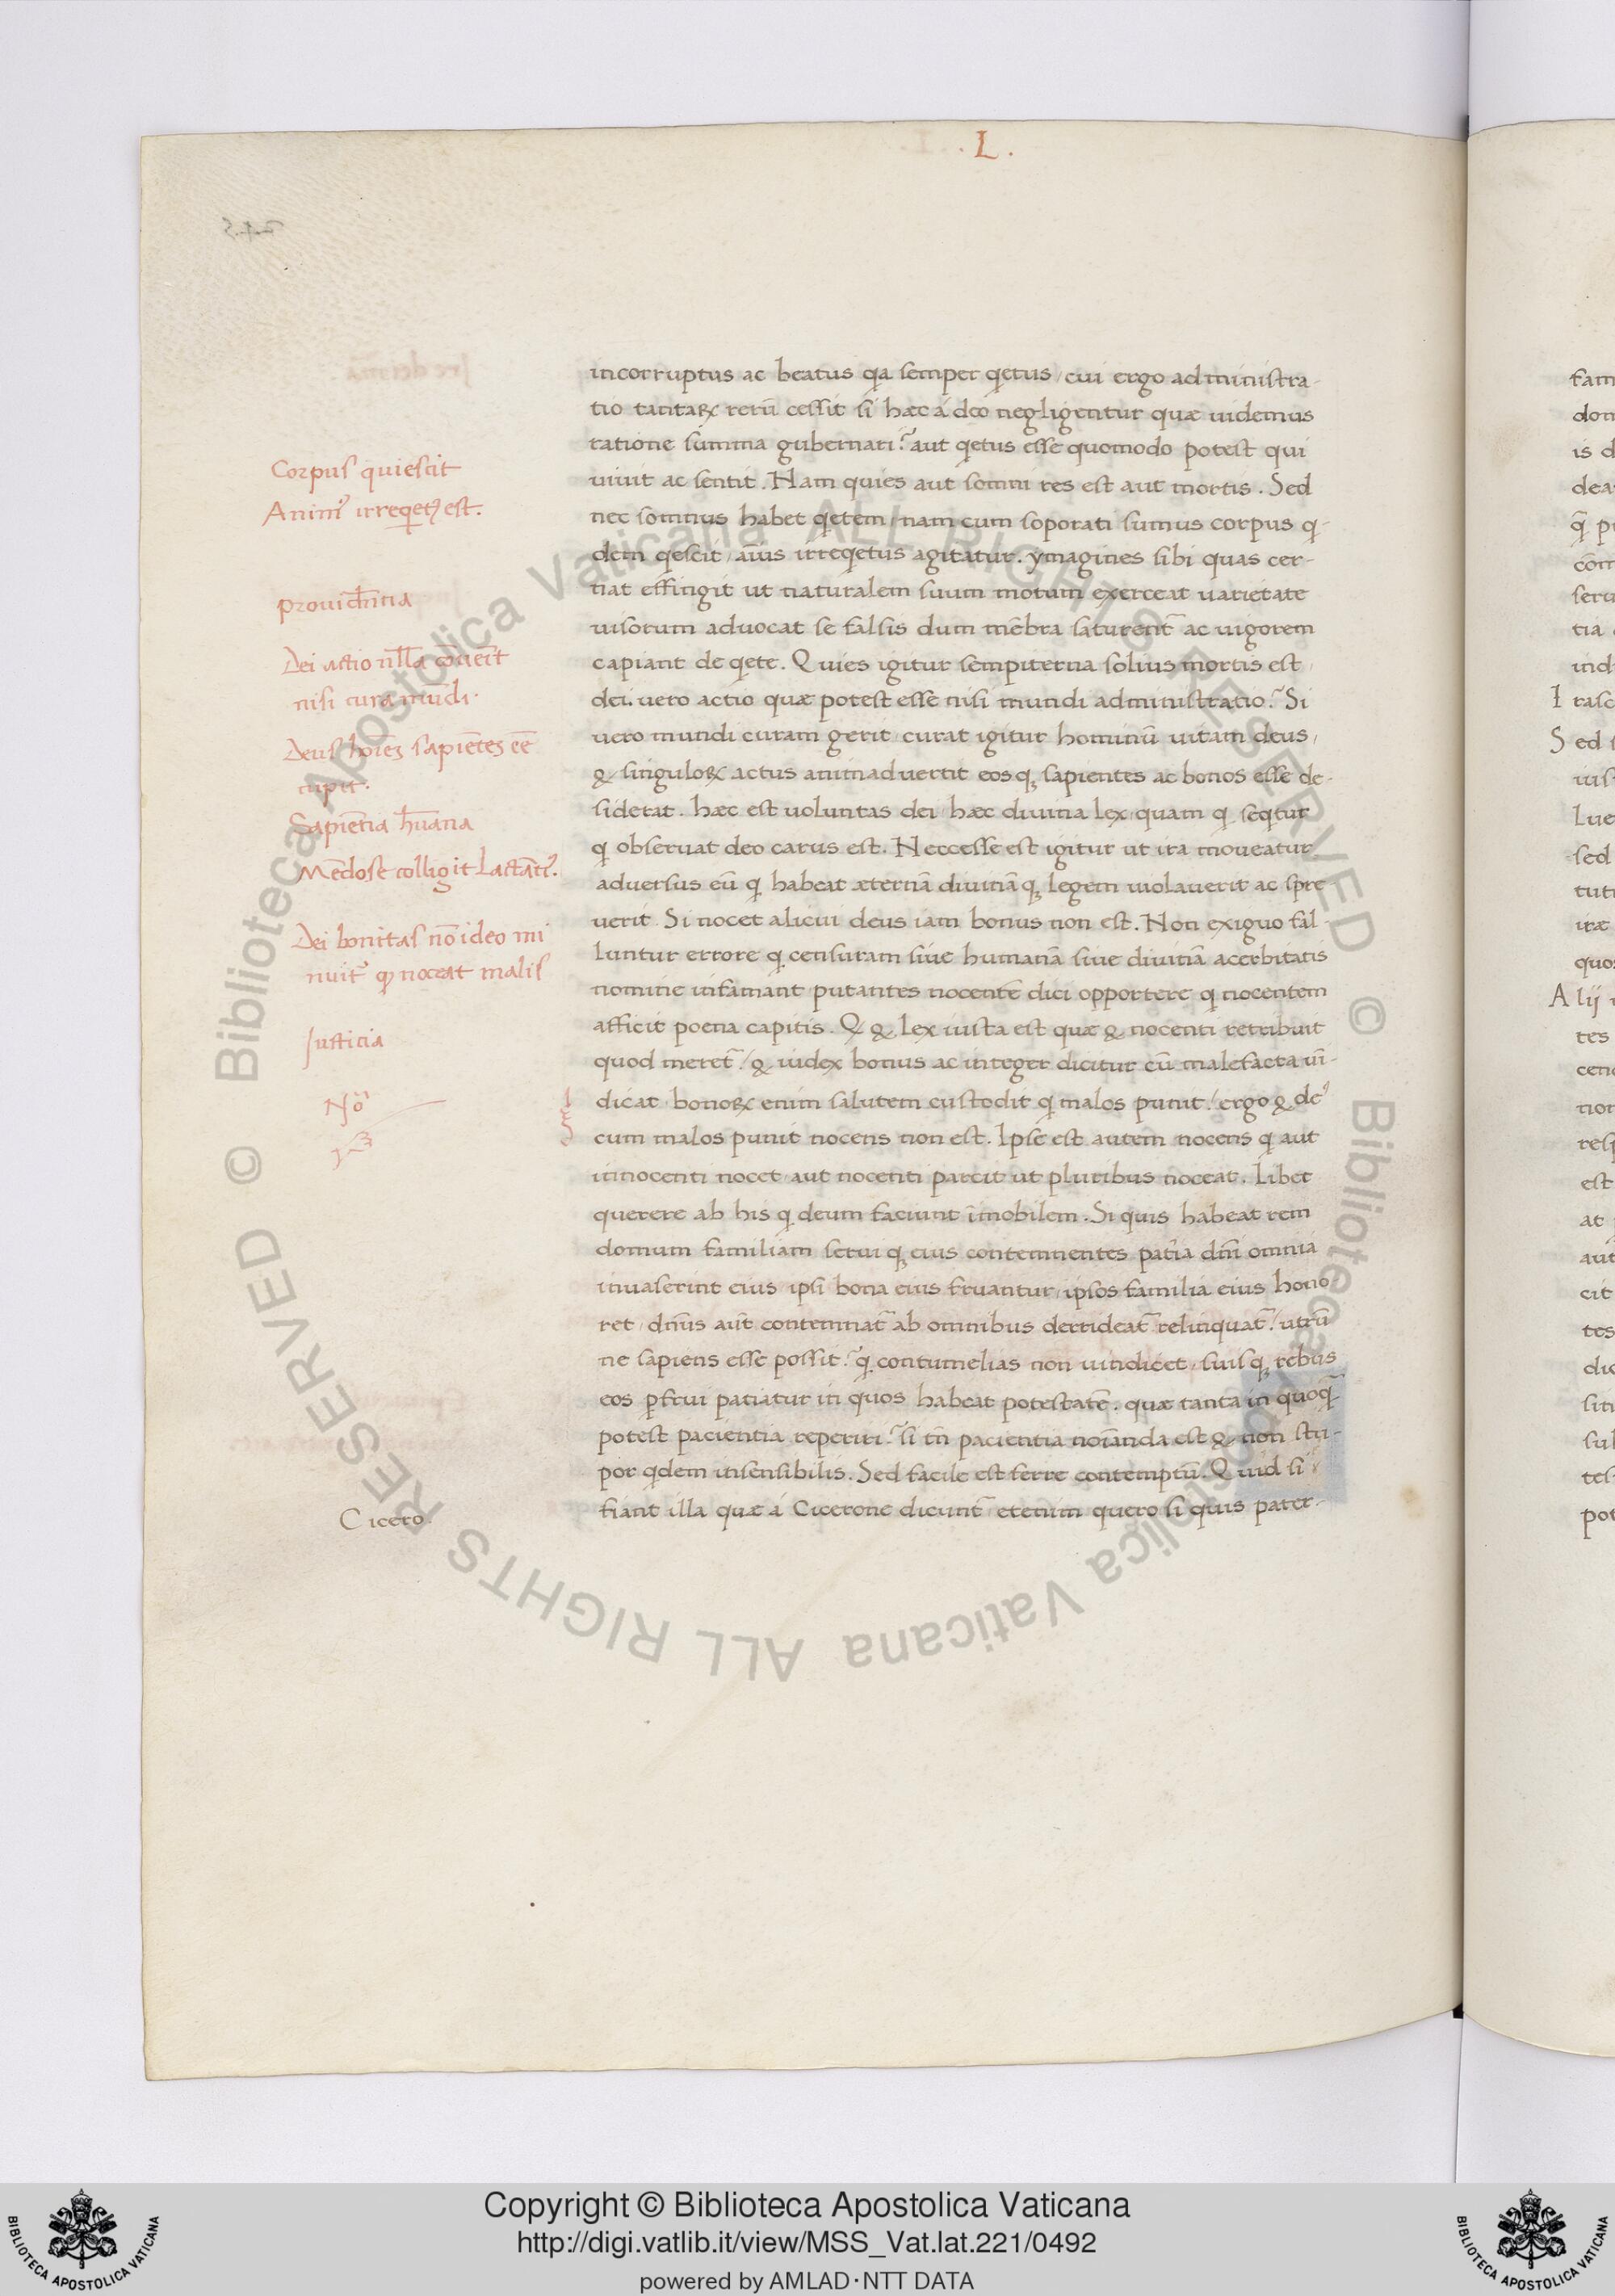 . L .
incorruptus ac beatus qa semper qetus / cui ergo administra-
tio tantaꝝ rerū cessit si hæc á deo negligentur quæ uidemus
ratione summa gubernari? aut qetus esse quomodo potest qui
uiuit ac sentit. Nam quies aut somni res est aut mortis. Sed
nec somnus habet qetem / nam cum soporati sumus corpus q-
dem qescit / aīus irreqetus agitatur. ymagines sibi quas cer-
nat effingit ut naturalem suum motum exerceat uarietate
uisorum advocat se falsis dum mēbra saturent̄ ac uigorem
capiant de qete. Quies igitur sempiterna solius mortis est /
dei. uero actio quæ potest esse nisi mundi administratio? Si
uero mundi curam gerit / curat igitur hominū uitam deus /
& singuloꝝ actus animadvertit eosqꝫ sapientes ac bonos esse de-
siderat. hæc est uoluntas dei / hæc divina lex / quam q seqtur
q observat deo carus est. Neccesse est igitur ut ira moveatur
adversus eū q habeat æternā divināqꝫ legem violaverit ac spre
verit. Si nocet alicui deus iam bonus non est. Non exiguo fal-
luntur errore q censuram sive humanā sive divinā acerbitatis
nomine infamant putantes nocentē dici opportere q nocentem
afficit poena capitis. Q & lex iusta est quæ & nocenti retribuit
quod meret̄ / & iudex bonus ac integer dicitur cū malefacta uī-
dicat / bonoꝝ enim salutem custodit q malos punit / ergo & deꝰ
cum malos punit nocens non est. Ipse est autem nocens q aut
innocenti nocet aut nocenti parcit ut pluribus noceat. Libet
querere ab his q deum faciunt īmobilem. Si quis habeat rem
domum familiam seruiqꝫ eius contemnentes patīa dn̄i omnia
inuaserint eius ipsi bona eius fruantur / ipsos familia eius hono
ret / dn̄us aūt contemnat̄ ab omnibus derrideat̄ relinquat̄ / utrū
ne sapiens esse possit? q contumelias non uindicet / suisqꝫ rebus
eos ꝑfrui patiatur in quos habeat potestatē. quæ tanta in quoq̄
potest pacientia reperiri? si tn̄ pacientia noīanda est & non stu-
por qdem insensibilis. Sed facile est ferre contemptū. Quid si
fiant illa quæ á Cicerone dicunt̄ etenim quero si quis pater
Corpus quiescit
Animꝰ irreqetꝰ est.
prouidn̄tia
Dei actio nlla cōuenit
nisi cura mundi.
Deus hoīes sapiētes eē
cupit.
Sapiētia huāna
Mēdose colligit Lactātiꝰ.
Dei bonitas nō ideo mi
nuit̄ q noceat malis
Justicia
Nō
Cicero.
I rasc
S ed
A lij
Copyright © Biblioteca Apostolica Vaticana
http://digi.vatlib.it/view/MSS_Vat.lat.221/0492
powered by AMLAD · NTT DATA
BIBLIOTECA APOSTOLICA VATICANA
BIBLIOTECA APOSTOLICA VATICANA
© Biblioteca Apostolica Vaticana ALL RIGHTS RESERVED © Biblioteca Apostolica Vaticana ALL RIGHTS RESERVED